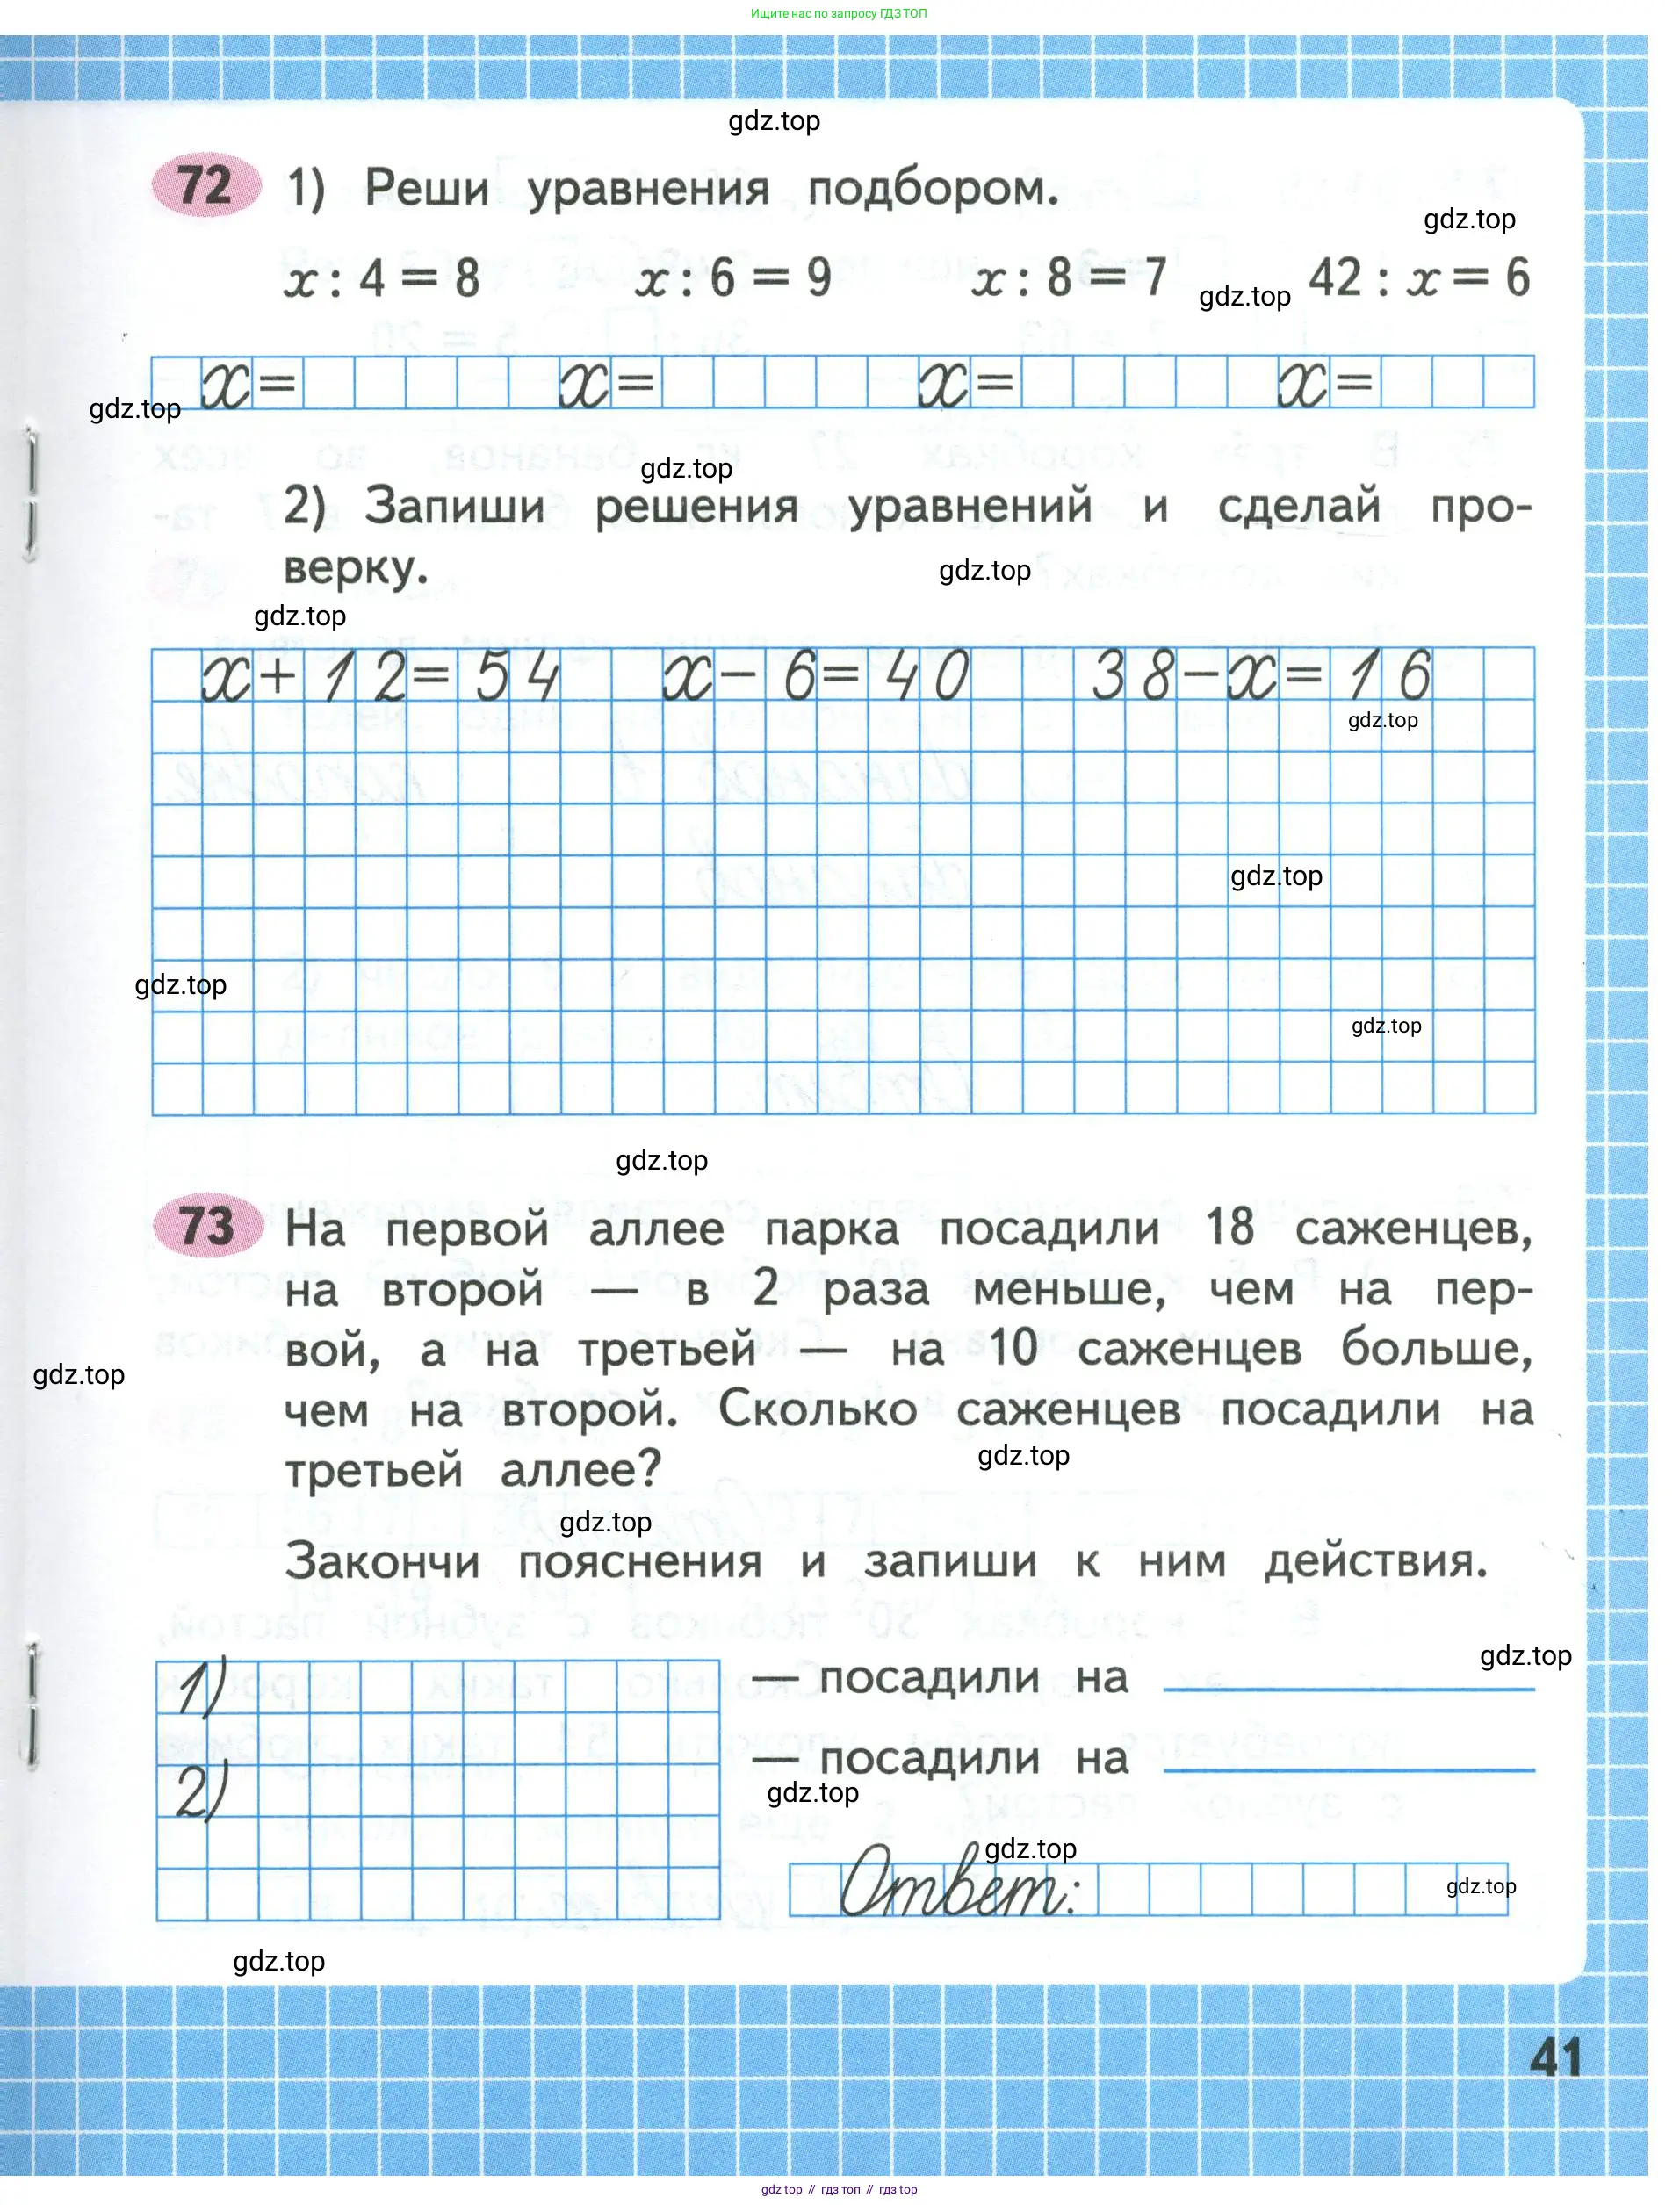 Ищите нас по запросу ГДЗ ТОП
gdz.top
72 1) Реши уравнения подбором.
gdz.top
x : 4 = 8 x : 6 = 9 x : 8 = 7 gdz.top 42 : x = 6
x = x = x = x =
gdz.top
gdz.top
2) Запиши решения уравнений и сделай про-
верку.
gdz.top
gdz.top
x + 12 = 54 x - 6 = 40 38 - x = 16
gdz.top
gdz.top
gdz.top
gdz.top
gdz.top
73 На первой аллее парка посадили 18 саженцев,
на второй — в 2 раза меньше, чем на пер-
вой, а на третьей — на 10 саженцев больше,
gdz.top
чем на второй. Сколько саженцев посадили на
третьей аллее?
gdz.top
gdz.top
Закончи пояснения и запиши к ним действия.
gdz.top
1) — посадили на
2) — посадили на
gdz.top
gdz.top
Ответ:
gdz.top
gdz.top
41
gdz top // гдз топ // гдз top